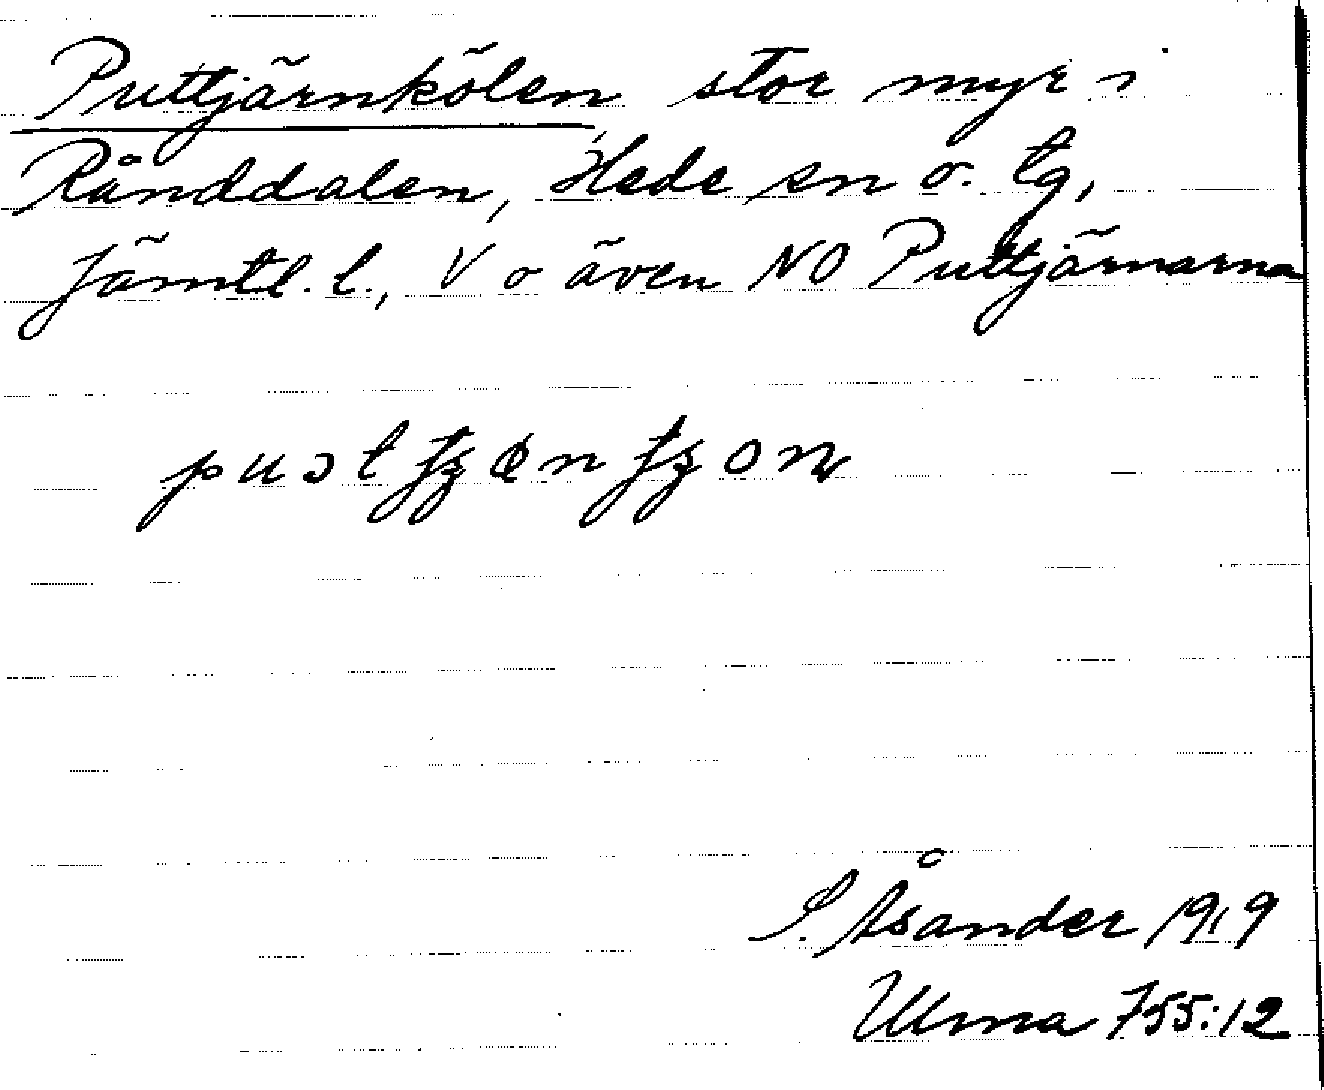 Puttjärnkölen stor myr i
Rånddalen, Hede sn o. tg,
Jämtl. l., V o även NO Puttjärnarna
S. Åsander 1919
Ulma 755:12